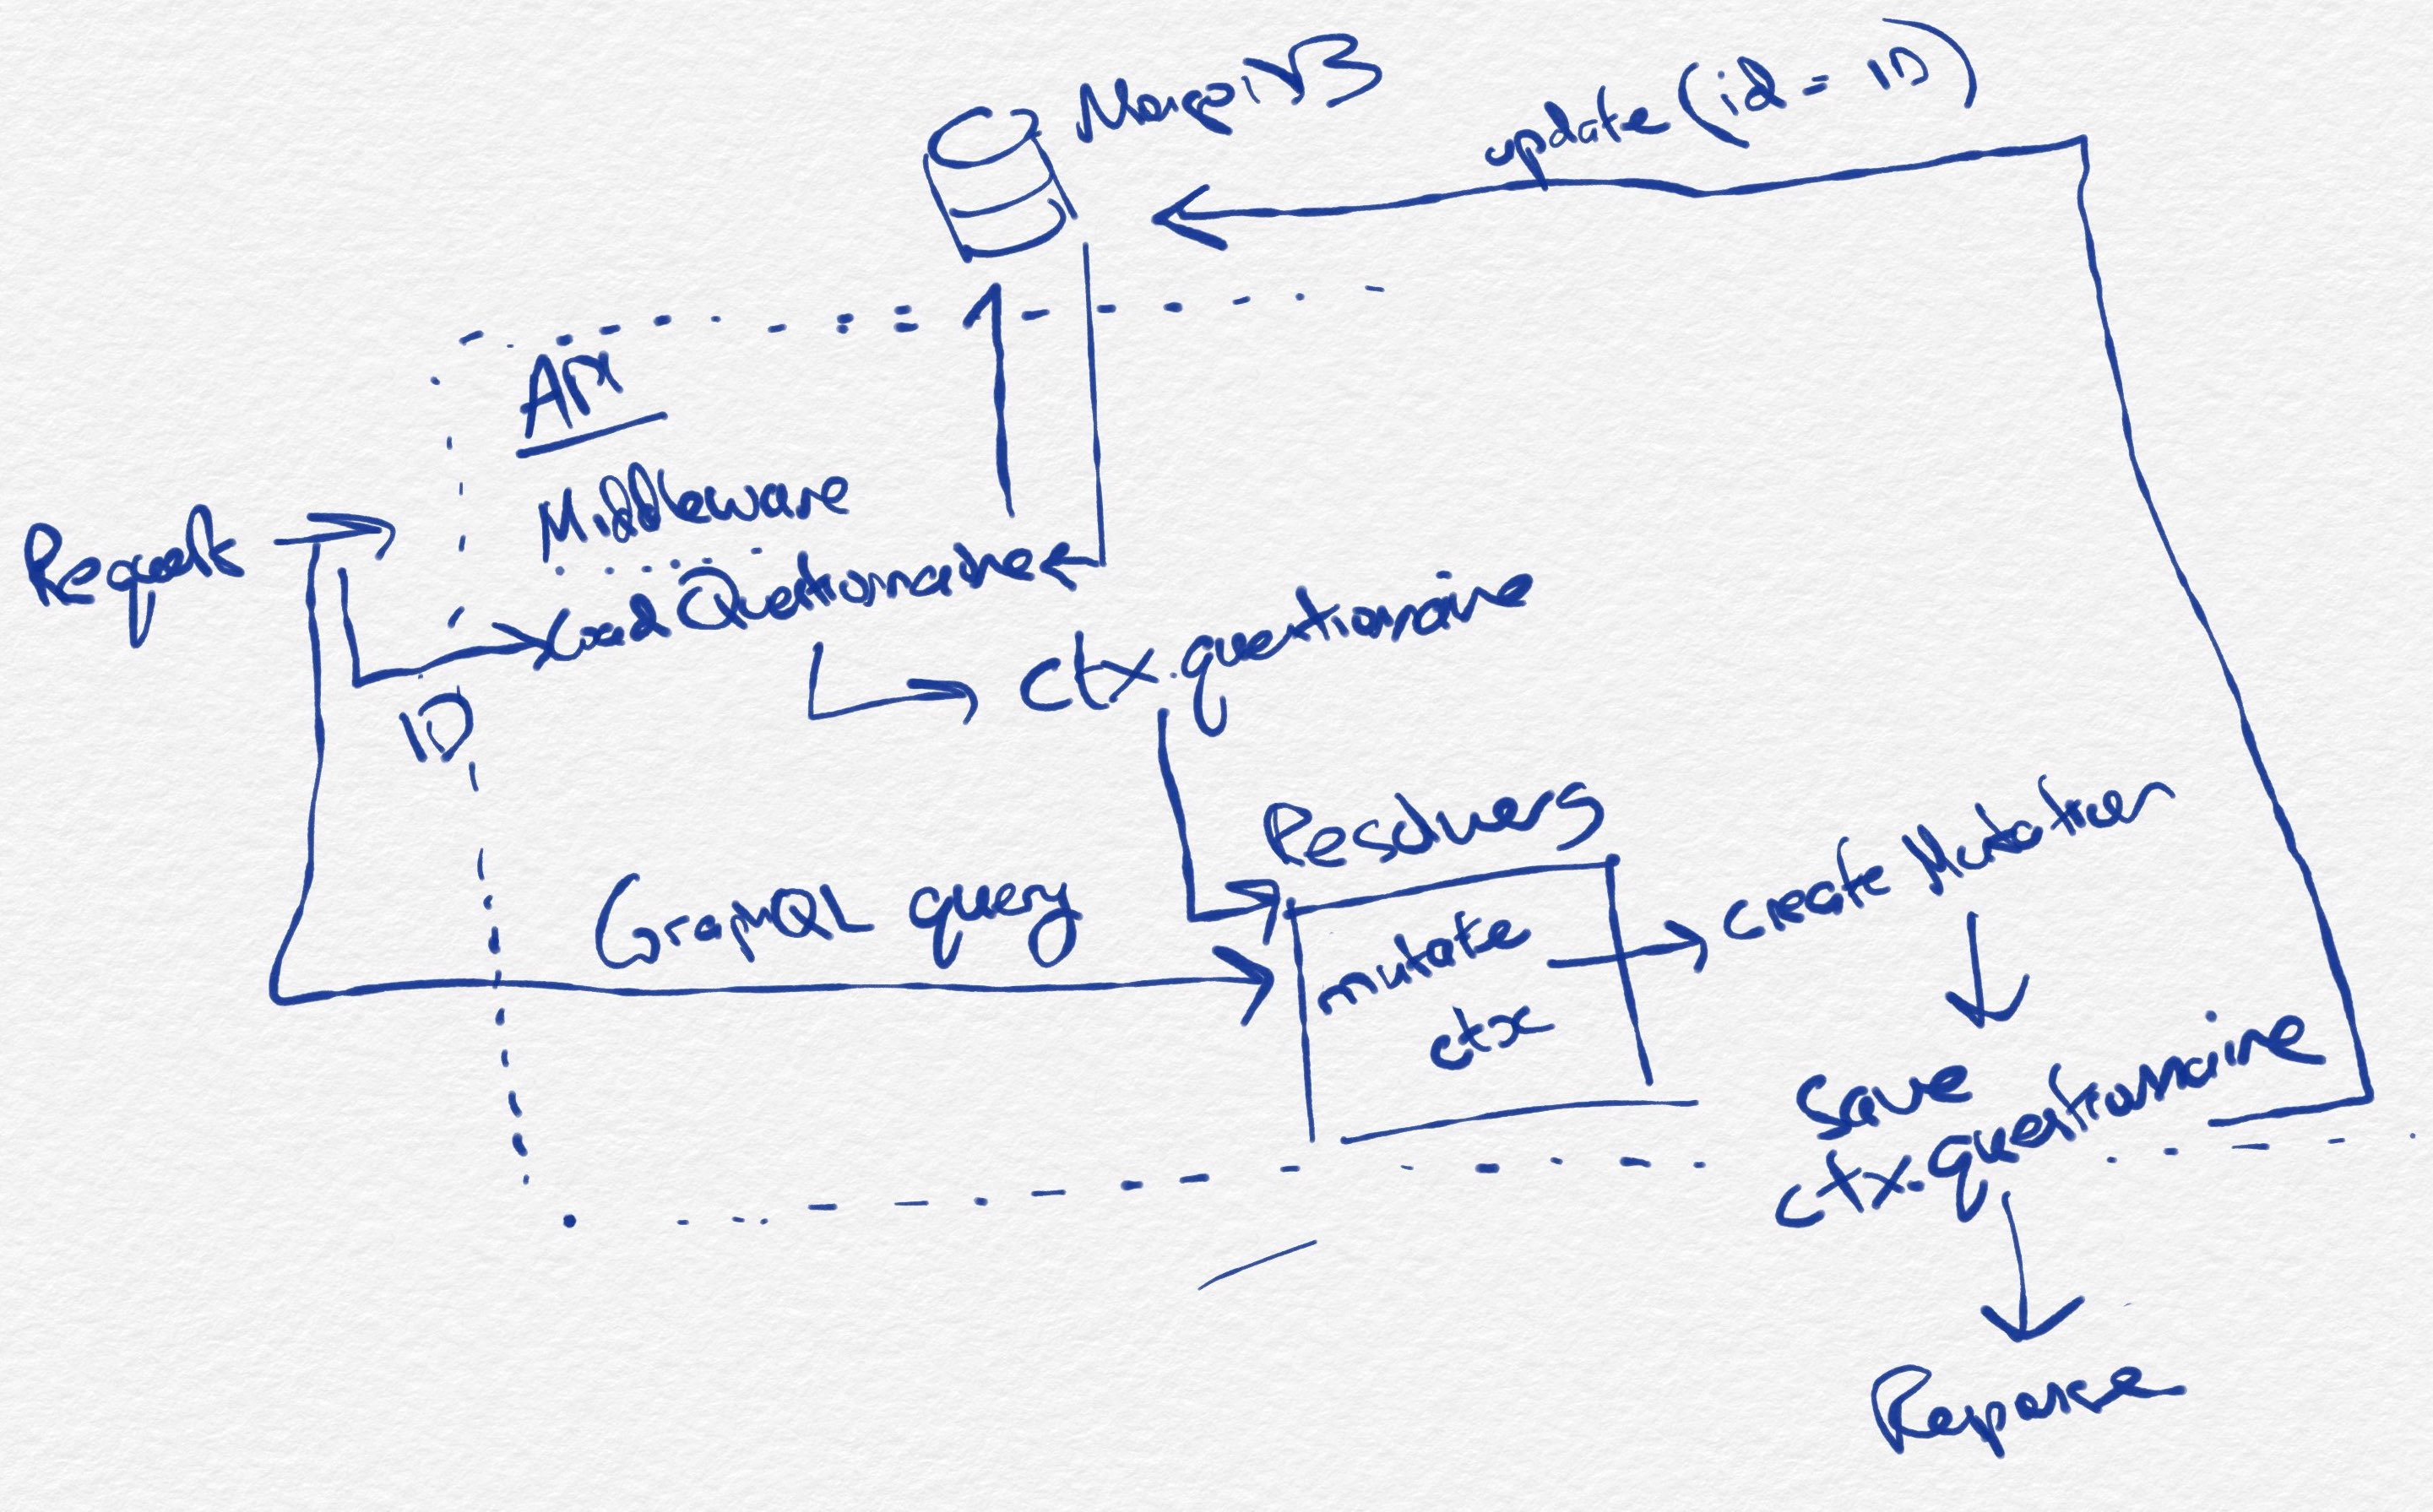 MongoDB
update (id = ID)
API
Middleware
Request
Load Questionnaire
ctx.questionnaire
ID
Resolvers
GraphQL query
mutate
ctx
create Mutation
Save
ctx.questionnaire
Response